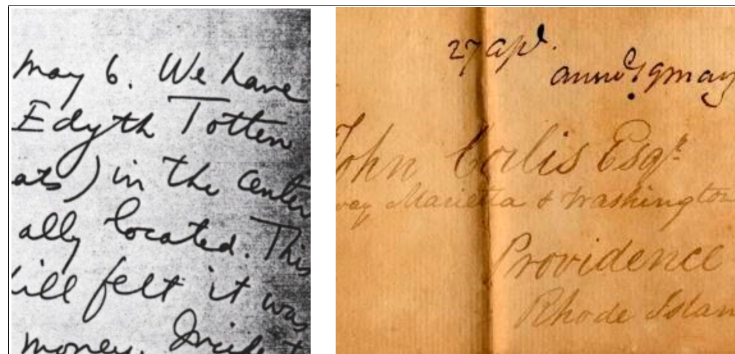 May 6. We have
Edyth Totten
ats) in the center
ally located. This
ill felt it was
money.
27 apl.
may
John Corlis Esqr.
way Marietta & Washington
Providence
Rhode Islan